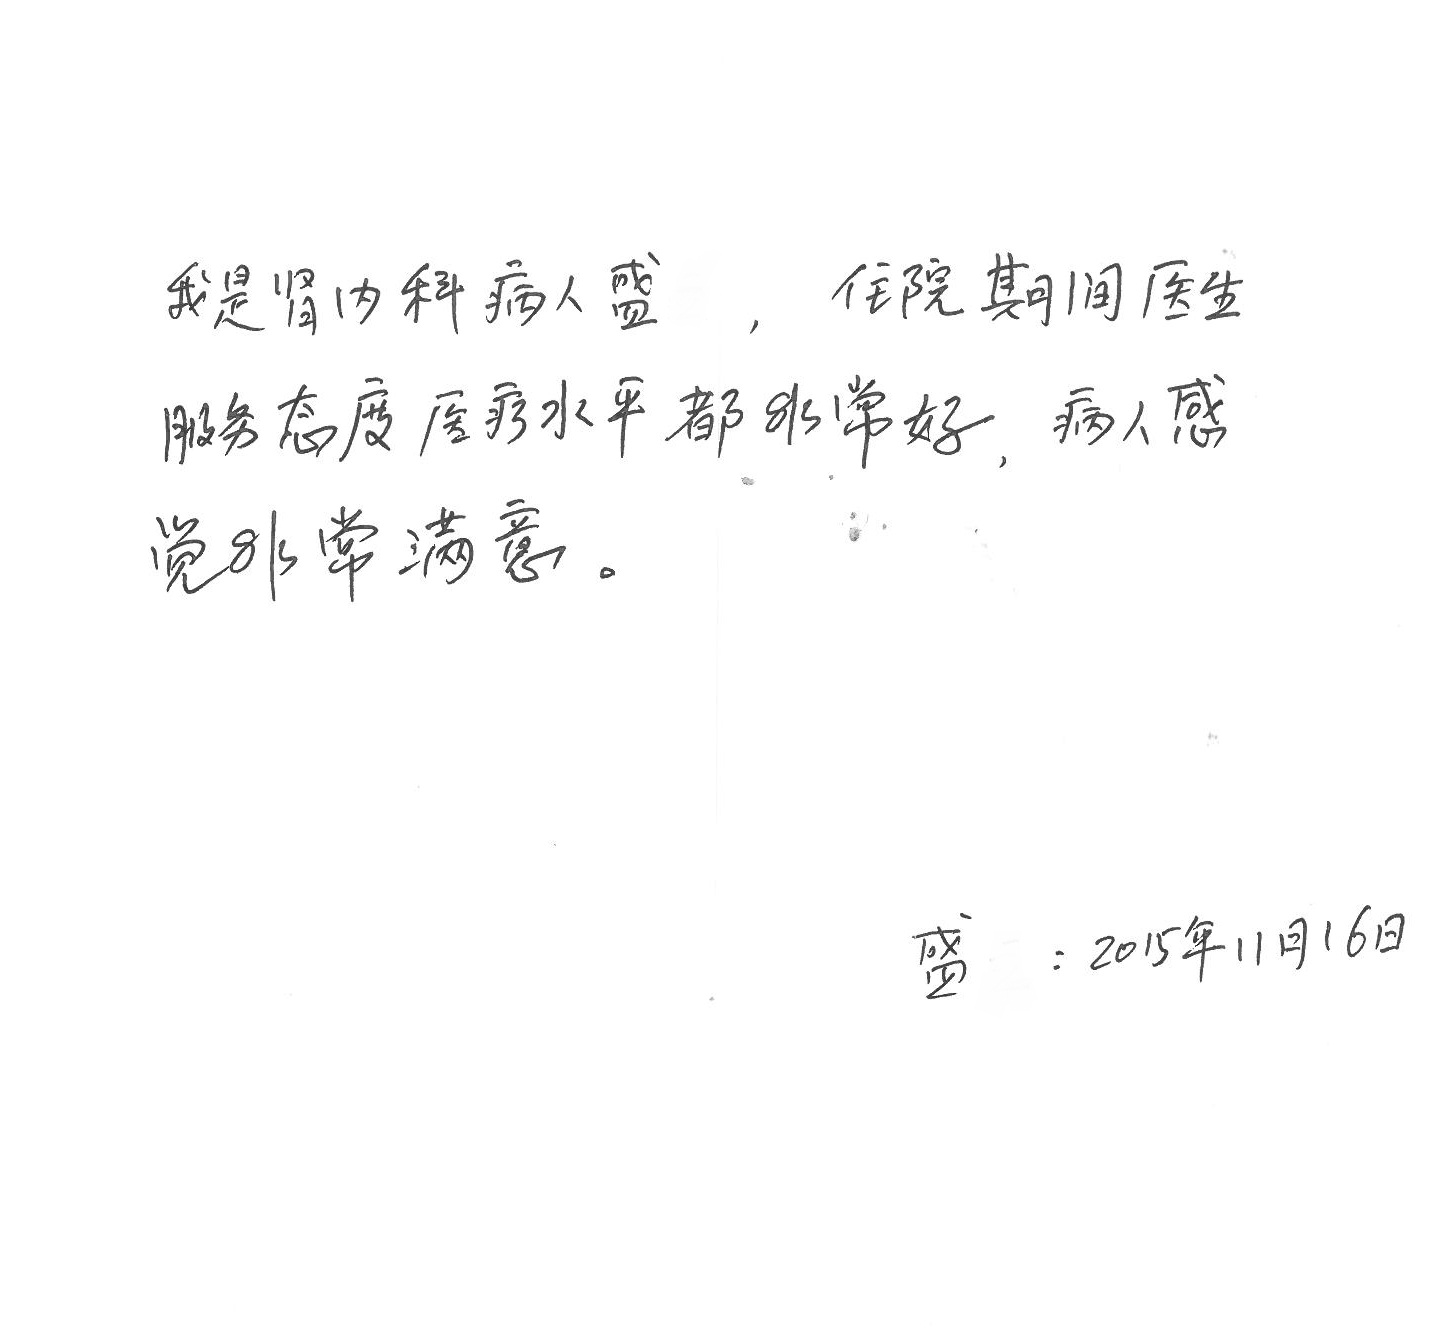 我是肾内科病人盛 ，住院期间医生
服务态度医疗水平都非常好，病人感
觉非常满意。
盛 ：2015年11月16日